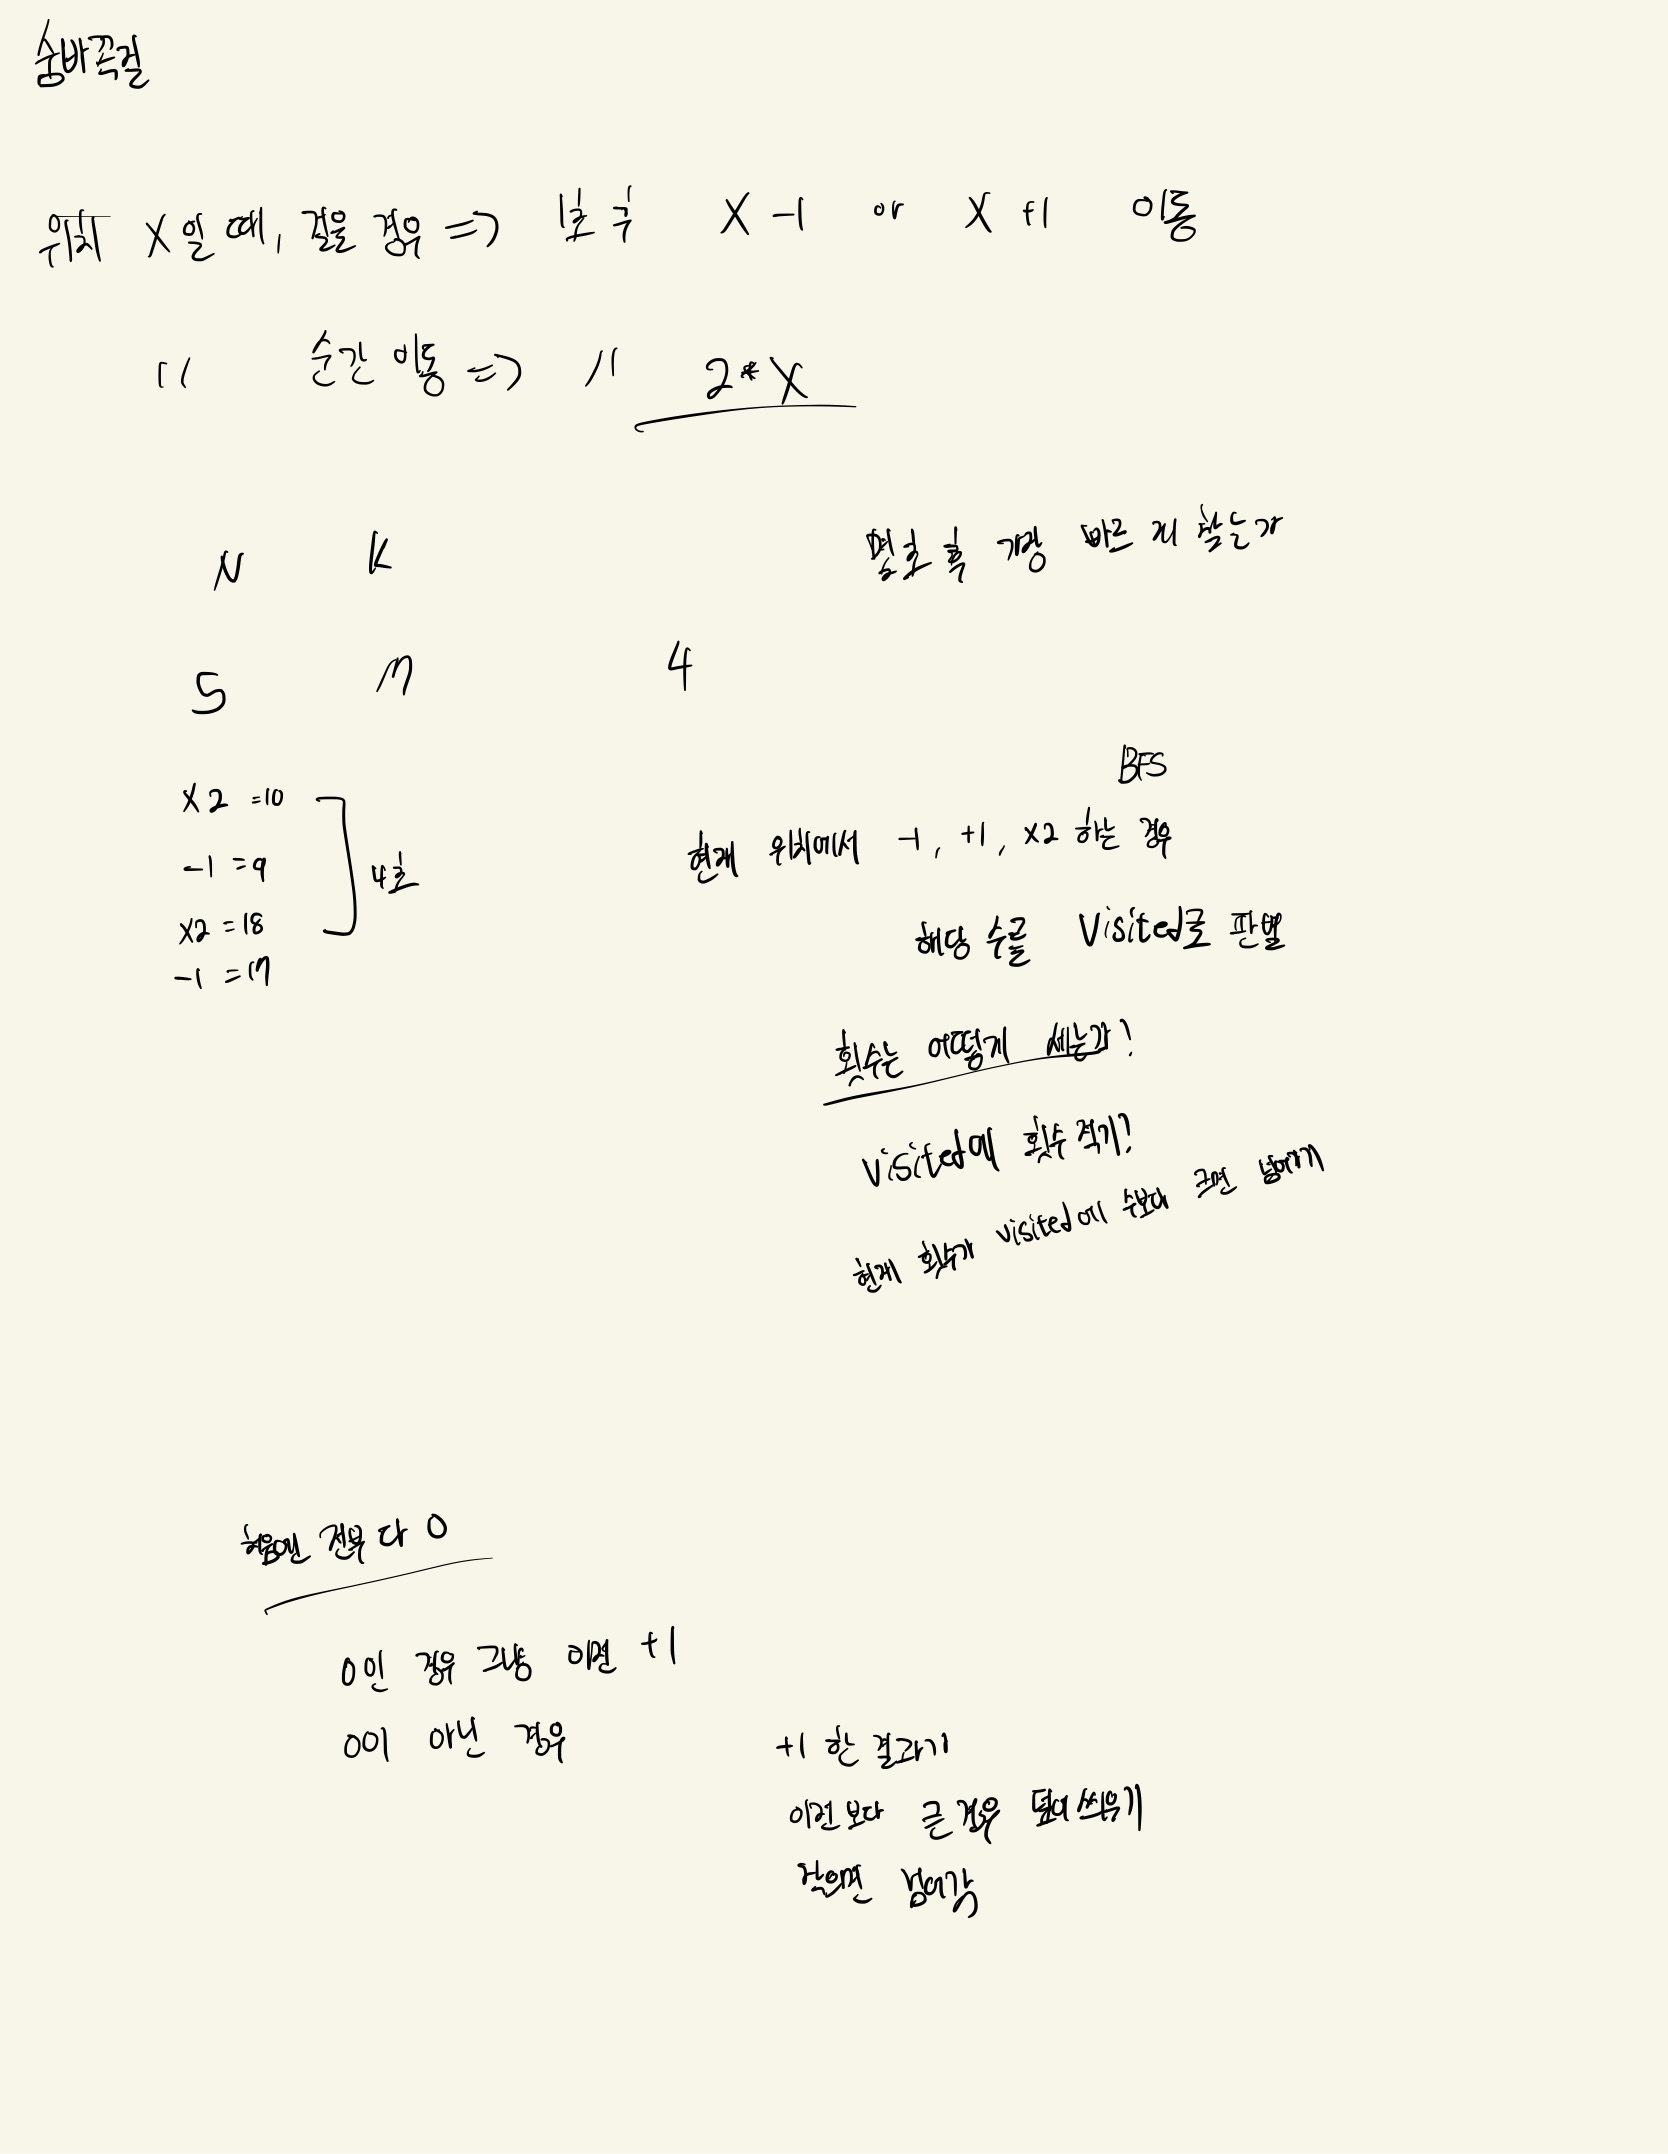 숨바꼭질
위치 X일 때, 걸을 경우 => 1초 후 X -1 or X +1 이동
〃 순간 이동 => 〃 2*X
N K
몇초 후 가장 빠르게 찾는가
5 17 4
BFS
x2 =10
-1 =9
x2 =18
-1 =17
4초
현재 위치에서 -1, +1, x2 하는 경우
해당 수를 visited로 판별
횟수는 어떻게 세는가?
visited에 횟수 적기?
현재 횟수가 visited에 수보다 크면 넘어가기
처음엔 전부 다 0
0인 경우 그냥 이전 +1
0이 아닌 경우
+1 한 결과가
이전보다 큰 경우 덮어씌우기
같으면 넘어감